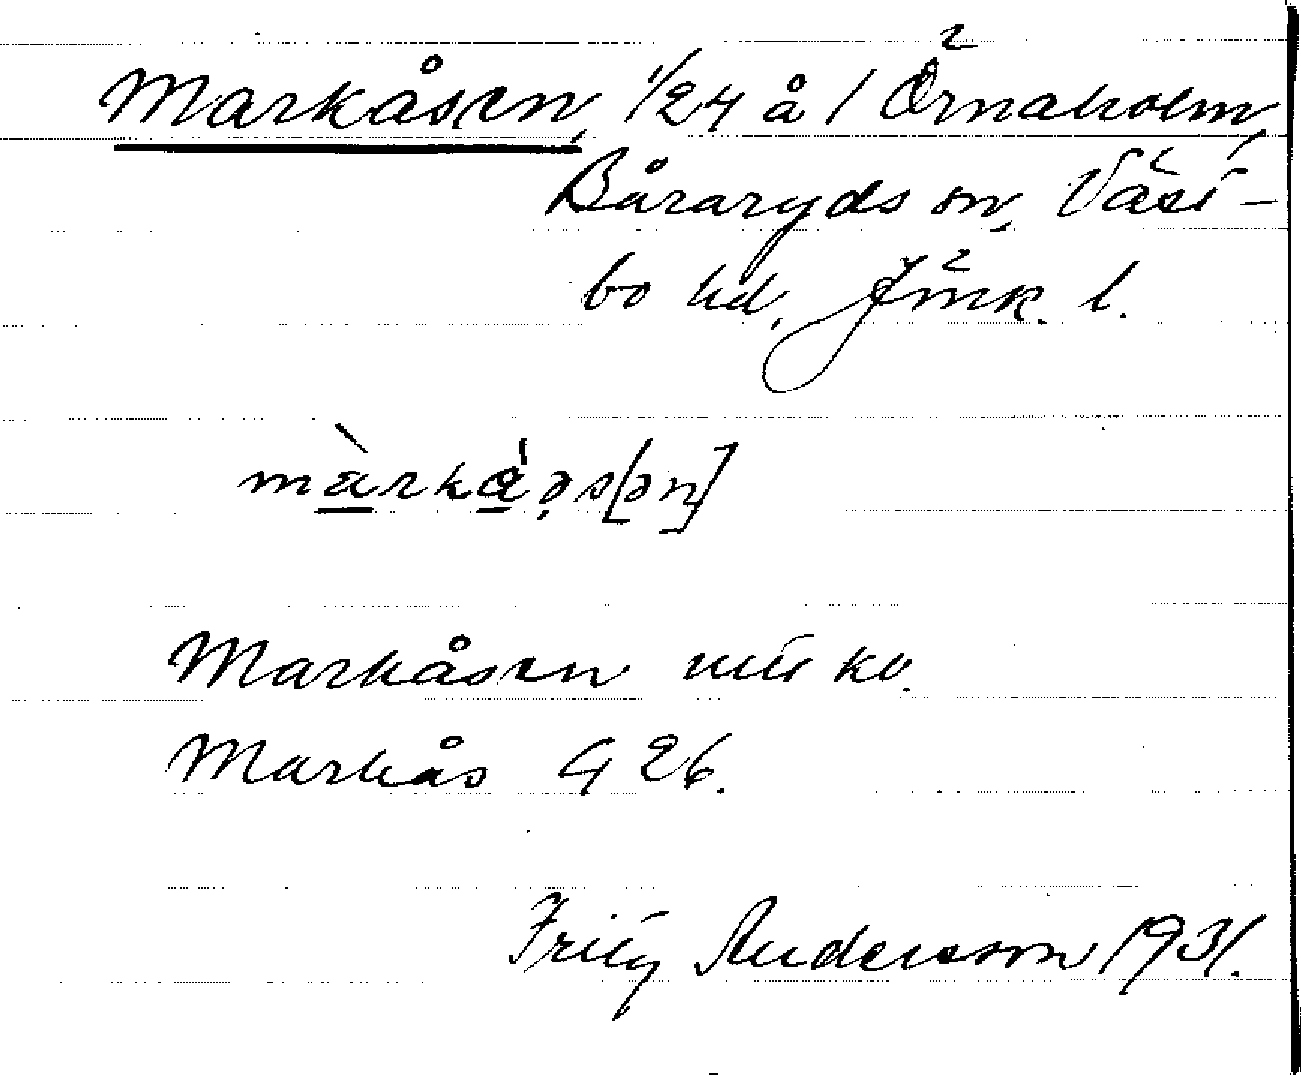 Markåsen, 1/24 å 1 Örnaholm,
Båraryds sn, Väst-
bo hd, Jönk. l.
màrkàꬿs[ən]
Markåsen utk kv.
Markås G 26.
Fritz Andersson 1931.